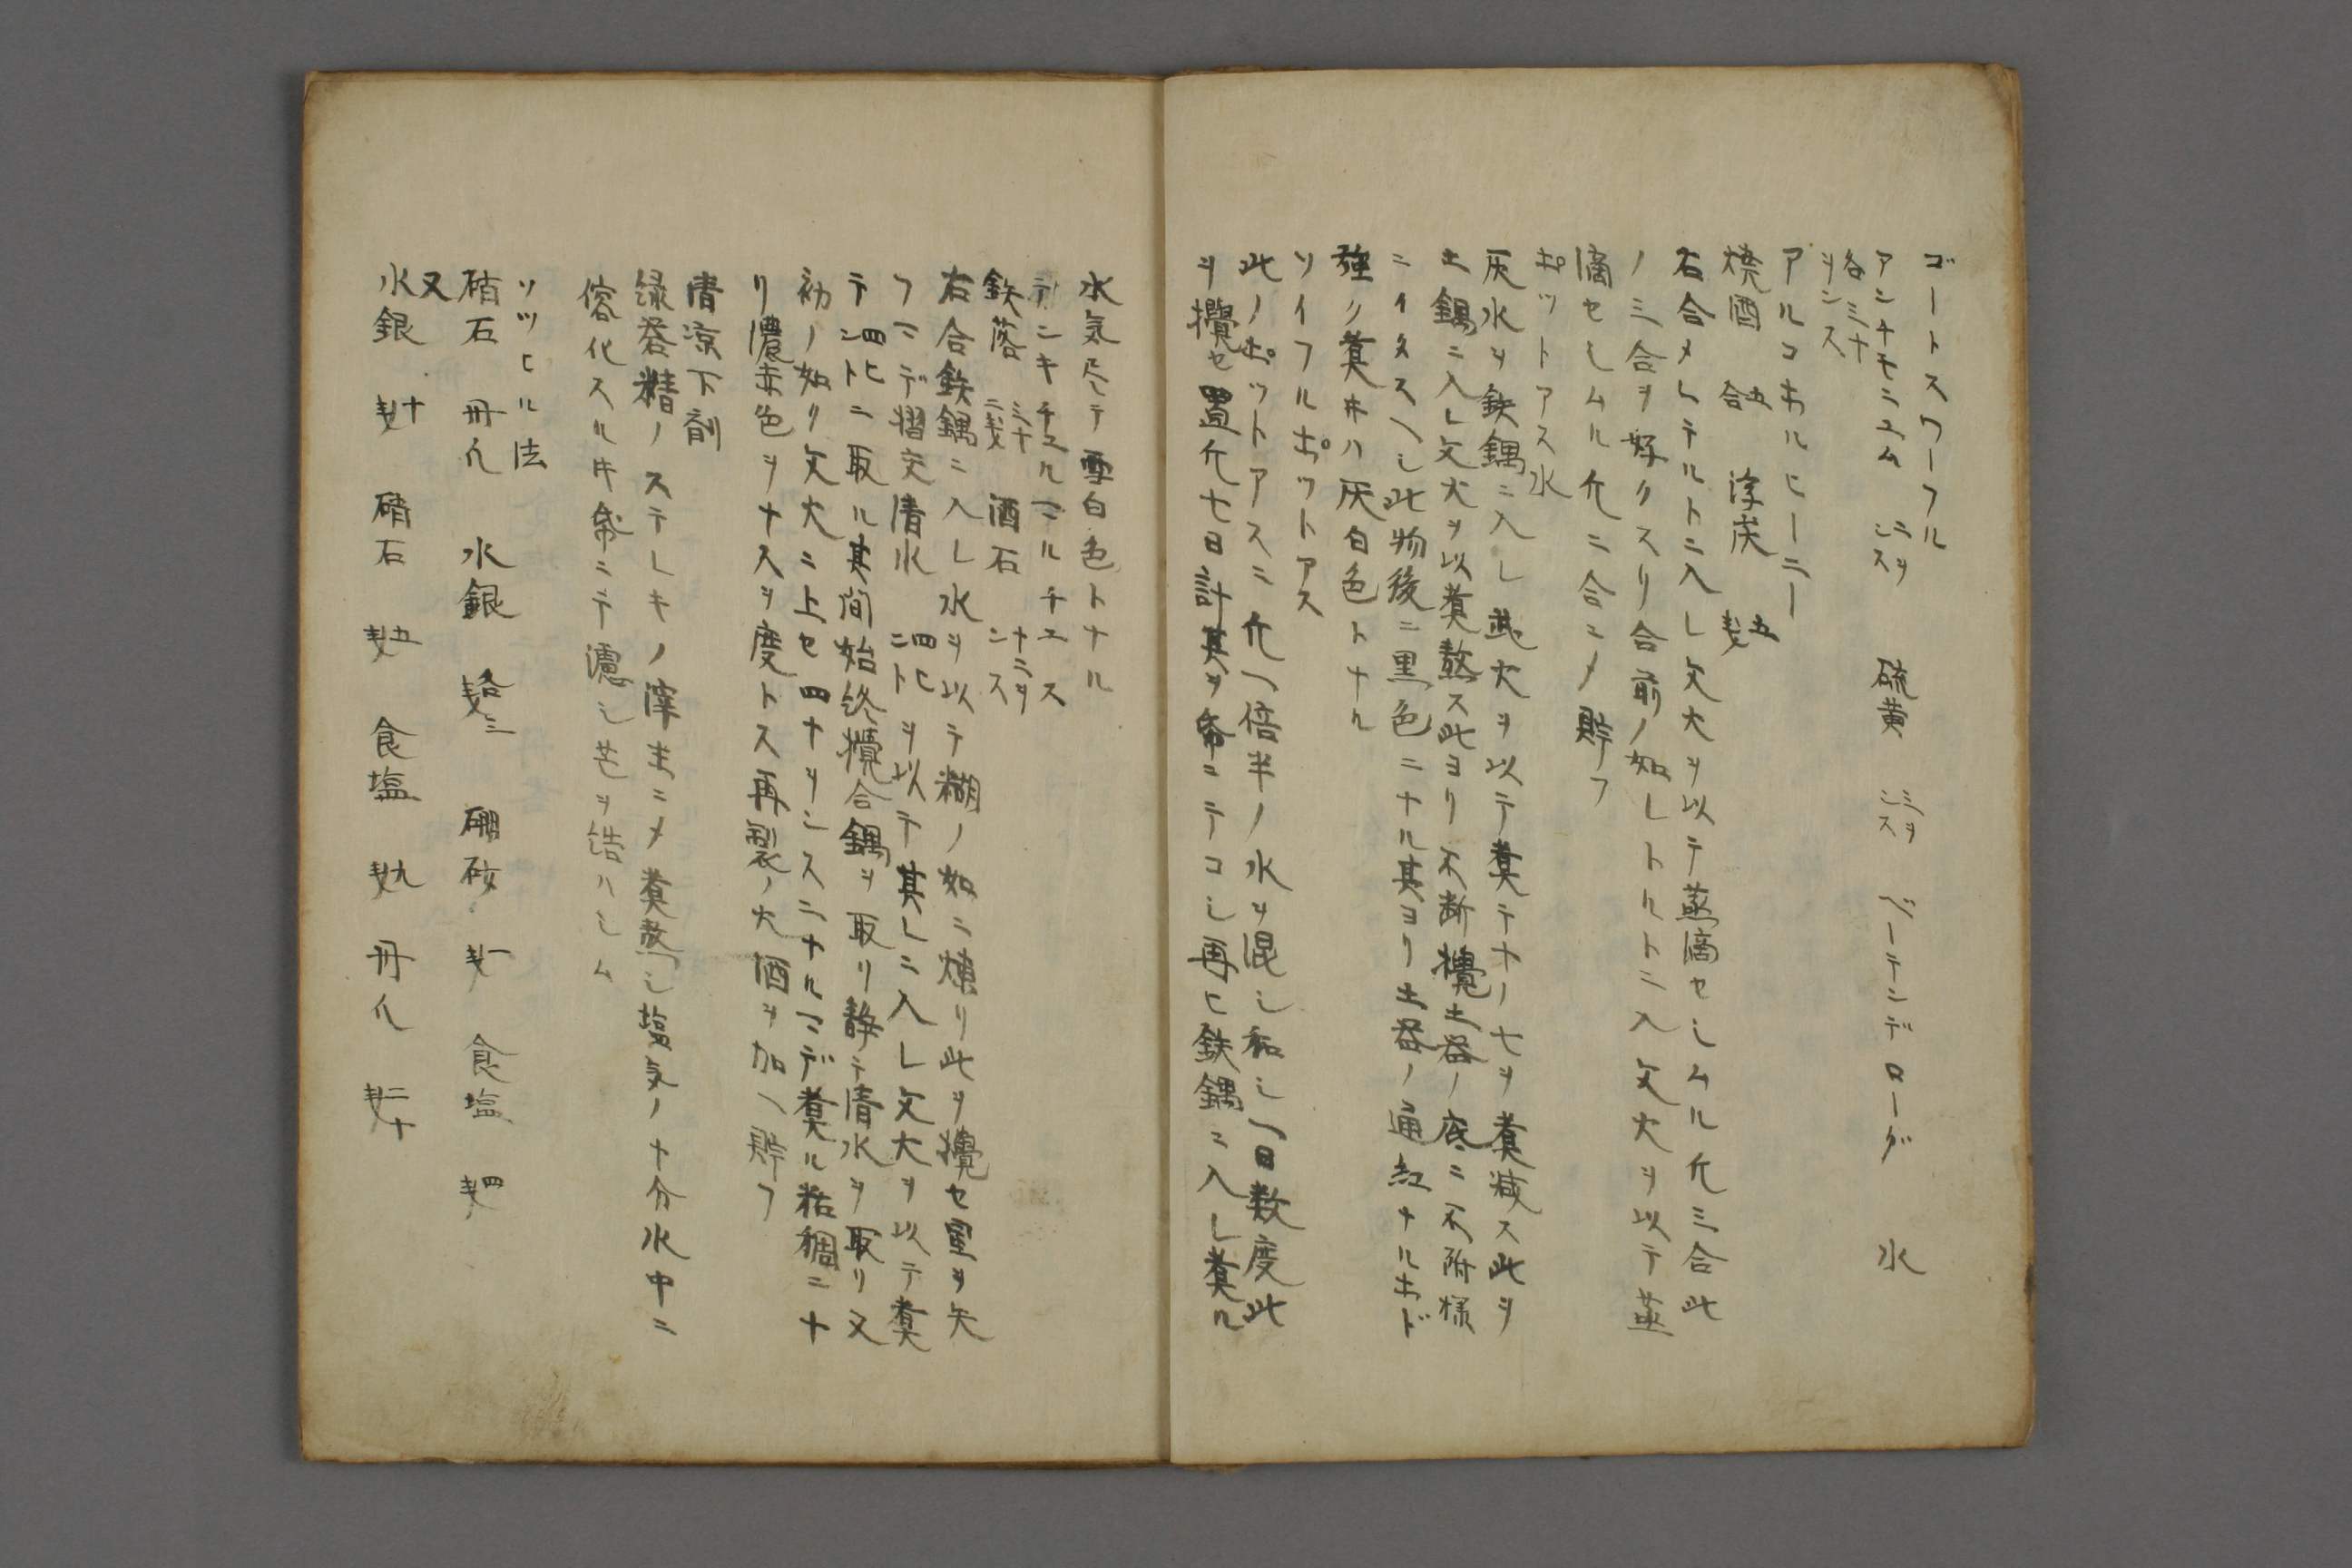 ゴートスワーフル
アンチモニユム 二ヲンス 硫黄 三ヲンス ベーテンデローグ 水
各三十
ヲンス
アルコホルヒーニー
焼酒 五合 浮炭 五匁
右合メレテルトニ入レ文火ヲ以テ蒸滴セシムル凢三合此
ノ三合ヲ好クスリ合前ノ如レトルトニ入文火ヲ以テ蒸
滴セしムル凢二合ニメ貯フ
ポットアス水
灰水ヲ鉄鍋ニ入レ武火ヲ以テ煮テ十ノ七ヲ煮减ス此ヲ
土鍋ニ入レ文火ヲ以煮熬ス此ヨリ不断攪土器ノ底ニ不附様
ニイタスヘし此物後ニ黒色ニナル其ヨリ土器ノ通紅ナルホド
強ク煮キハ灰白色トナル
ソイフルポットアス
此ノポットアスニ凢一倍半ノ水ヲ混し和し一日数度此
ヲ攪セ置凢七日計其ヲ帋ニテコし再ヒ鉄鍋ニ入レ煮ル
水気尽テ雪白色トナル
テンキチュルマルチス
鉄落 三十二匁 酒石 十二ヲンス
右合鉄鍋ニ入レ水ヲ以テ糊ノ如ニ煉リ此ヲ攪セ室ヲ失
フマデ摺交清水 四ヒント ヲ以テ其レニ入レ文火ヲ以テ煮
テ 四ヒント ニ取ル其間始終攪合鍋ヲ取リ静テ清水ヲ取リ又
初ノ如ク文火ニ上セ四十ヲンスニナルマデ煮ル粘稠ニナ
リ濃赤色ヲナスヲ度トス再製ノ火酒ヲ加ヘ貯フ
清涼下剤
緑礬精ノステレキノ滓末ニメ煮熬し塩気ノ十分水中ニ
溶化スルキ帋ニテ濾し芒ヲ結ハしム
ソッヒル法
硝石 丹凢 水銀 各三匁 硼砂 一匁 食塩 四匁
又
水銀 十匁 硝石 五匁 食塩 九匁 丹凢 二十匁